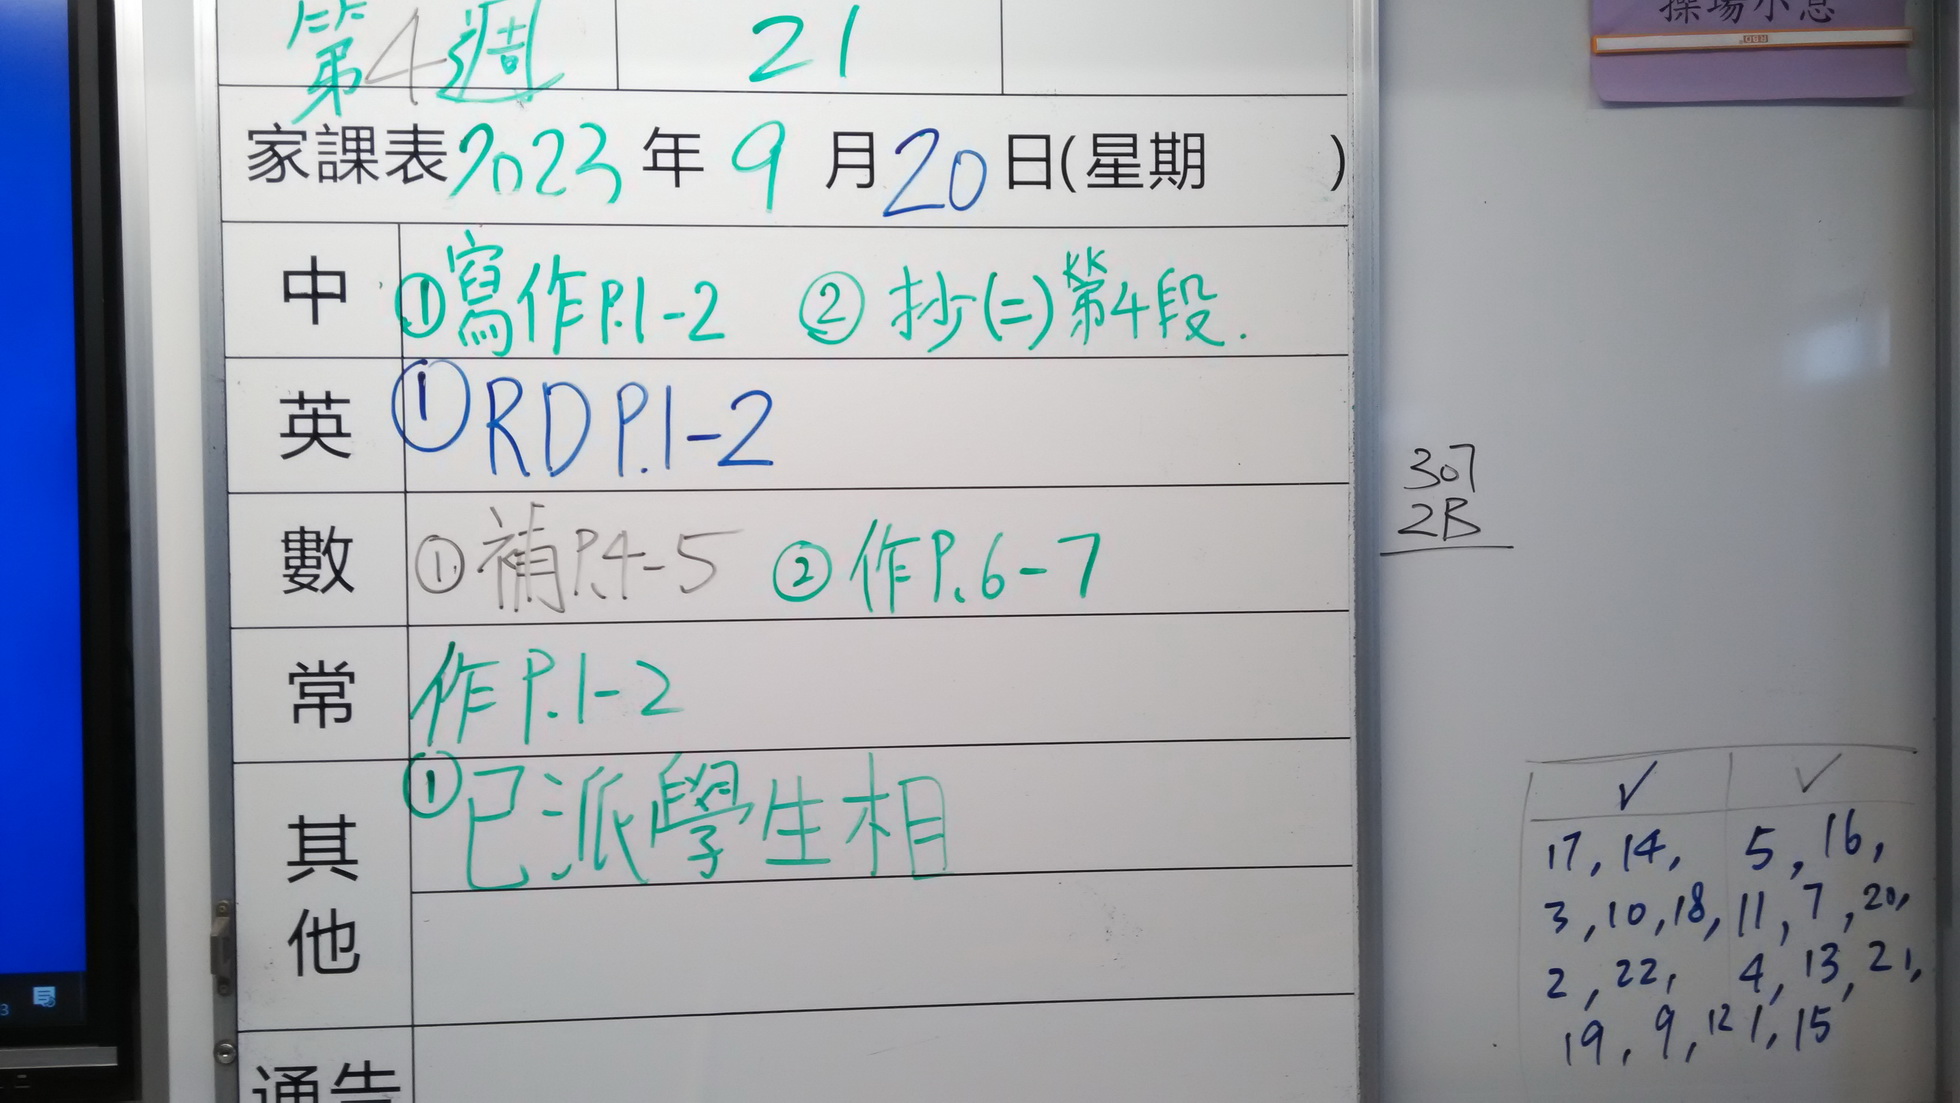 操場小息
第4週 21
家課表 2023 年 9 月 20 日(星期 )
中 ①寫作P.1-2 ②抄(二)第4段.
英 ①RD P.1-2
307
2B
數 ①補P.4-5 ②作P.6-7
常 作P.1-2
其他 ①已派學生相
通告
✓ ✓
17, 14, 5, 16,
3, 10, 18, 11, 7, 20,
2, 22, 4, 13, 21,
19, 9, 12 1, 15
3